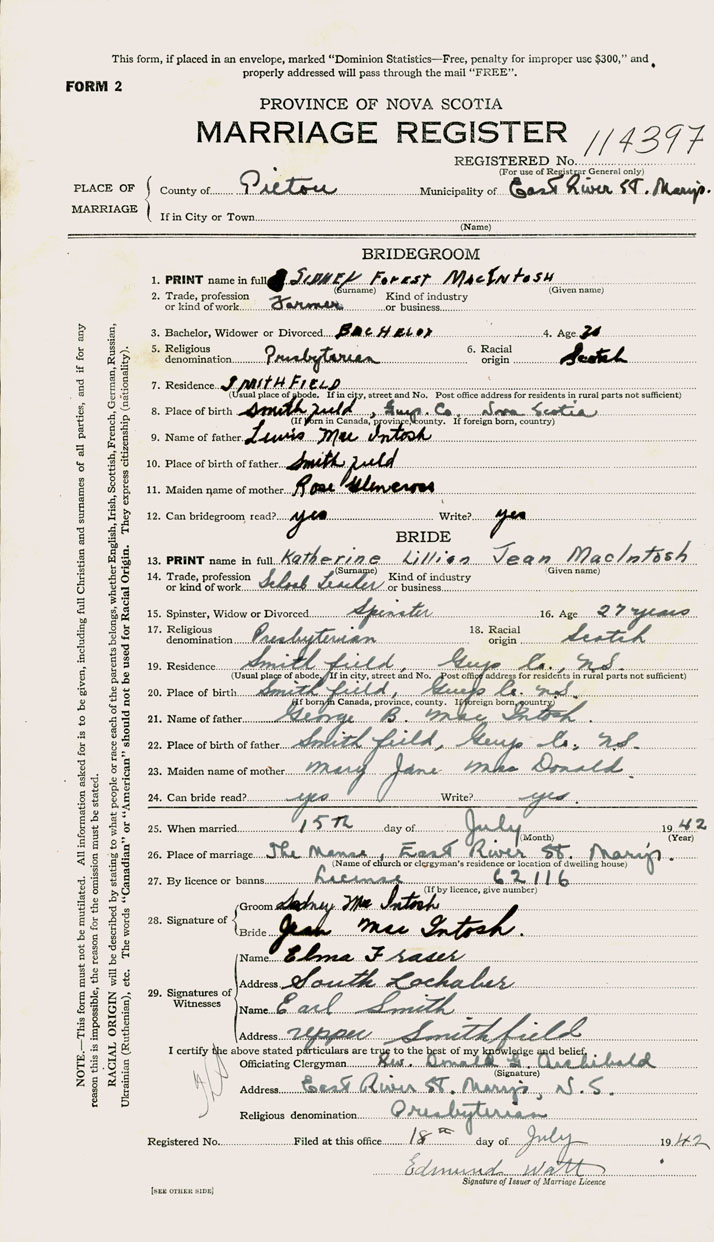 This form, if placed in an envelope, marked "Dominion Statistics—Free, penalty for improper use $300," and
properly addressed will pass through the mail "FREE".
FORM 2
PROVINCE OF NOVA SCOTIA
MARRIAGE REGISTER 114397
REGISTERED No.
(For use of Registrar General only)
PLACE OF MARRIAGE
County of Pictou Municipality of East River St. Marys.
If in City or Town
(Name)
BRIDEGROOM
1. PRINT name in full SIDNEY FOREST MACINTOSH
(Surname) (Given name)
2. Trade, profession or kind of work Farmer Kind of industry or business
3. Bachelor, Widower or Divorced BACHELOR 4. Age
5. Religious denomination Presbyterian 6. Racial origin Scotch
7. Residence SMITHFIELD
(Usual place of abode. If in city, street and No. Post office address for residents in rural parts not sufficient)
8. Place of birth Smithfield, Guys. Co. Nova Scotia
(If born in Canada, province, county. If foreign born, country)
9. Name of father Lewis Mac Intosh
10. Place of birth of father Smithfield
11. Maiden name of mother Rose Glencross
12. Can bridegroom read? yes Write? yes
BRIDE
13. PRINT name in full Katherine Lillian Jean MacIntosh
(Surname) (Given name)
14. Trade, profession or kind of work School Teacher Kind of industry or business
15. Spinster, Widow or Divorced Spinster 16. Age 27 years
17. Religious denomination Presbyterian 18. Racial origin Scotch
19. Residence Smithfield, Guys Co., N.S.
(Usual place of abode. If in city, street and No. Post office address for residents in rural parts not sufficient)
20. Place of birth Smithfield, Guys Co. N.S.
(If born in Canada, province, county. If foreign born, country)
21. Name of father George B. Mac Intosh
22. Place of birth of father Smithfield, Guys Co., N.S.
23. Maiden name of mother Mary Jane Mac Donald
24. Can bride read? yes Write? yes.
25. When married 15th day of July 1942
(Month) (Year)
26. Place of marriage The Manse, East River St. Marys.
(Name of church or clergyman's residence or location of dwelling house)
27. By licence or banns License 62116
(If by licence, give number)
28. Signature of
Groom Sidney Mac Intosh
Bride Jean Mac Intosh.
29. Signatures of Witnesses
Name Elma Fraser
Address South Lochaber
Name Earl Smith
Address Upper Smithfield
I certify the above stated particulars are true to the best of my knowledge and belief,
Officiating Clergyman Rev. Donald F. Archibald
(Signature)
Address East River St. Marys, N.S.
Religious denomination Presbyterian
Registered No. Filed at this office 18th day of July 1942
Edmund Watt
Signature of Issuer of Marriage Licence
[SEE OTHER SIDE]
NOTE.—This form must not be mutilated. All information asked for is to be given, including full Christian and surnames of all parties, and if for any
reason this is impossible, the reason for the omission must be stated.
RACIAL ORIGIN will be described by stating to what people or race each of the parents belongs, whether English, Irish, Scottish, French, German, Russian,
Ukrainian (Ruthenian), etc. The words "Canadian" or "American" should not be used for Racial Origin. They express citizenship (nationality).